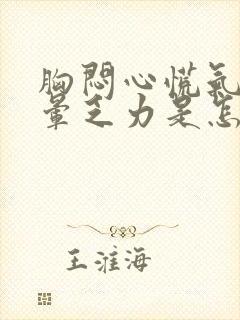 胸悶心慌氣
暈乏力是怎
王淮海